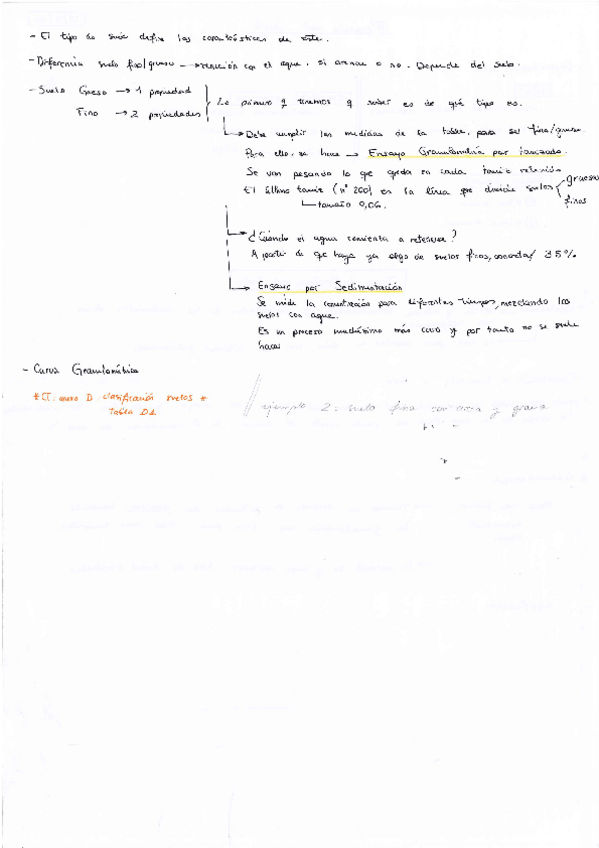 - El tipo de suelo define las características de este.
- Diferencia suelo fino/grueso → retención con el agua, si drenan o no. Depende del suelo.
- Suelo Grueso → 1 propiedad
Fino → 2 propiedades
Lo primero q tenemos q saber es de qué tipo es.
Debe cumplir las medidas de la tabla, para ser fino/grueso.
Para ello, se hace → Ensayo Granulometría por tamizado.
Se van pesando lo que queda en cada tamiz retenido
El último tamiz (nº 200) es la línea que divide suelos gruesos
finos
tamaño 0,06.
¿Cuándo el agua comienza a retenerse?
A partir de que haya ya algo de suelos finos, 35%
Ensayo por Sedimentación
Se mide la concentración para diferentes tiempos, mezclando los
suelos con agua.
Es un proceso muchísimo más caro y por tanto no se suele
hacer
- Curva Granulométrica
* CT. anexo D clasificación suelos *
Tabla D1
ejemplo 2: suelo fino con arena y grava